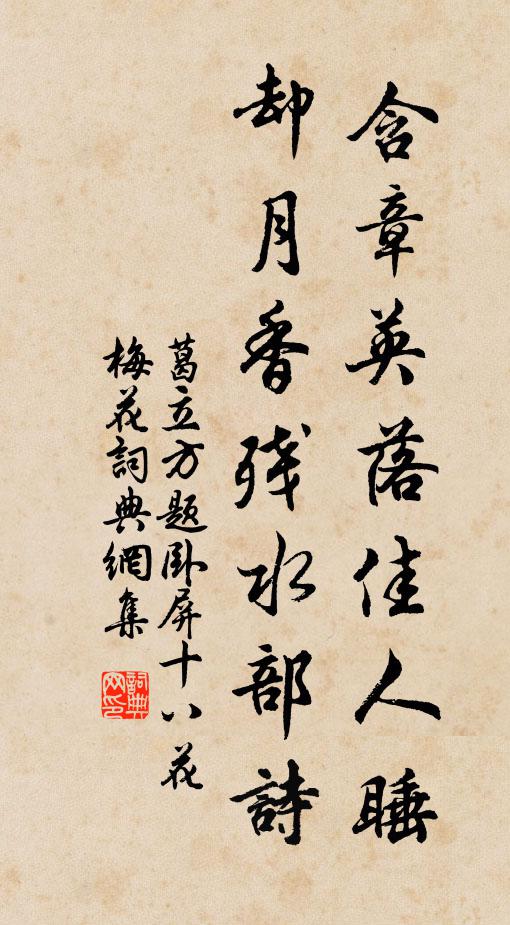 含章英落佳人睡
却月香残水部詩
葛立方題卧屏十八花
梅花詞典網集
詞典
网印